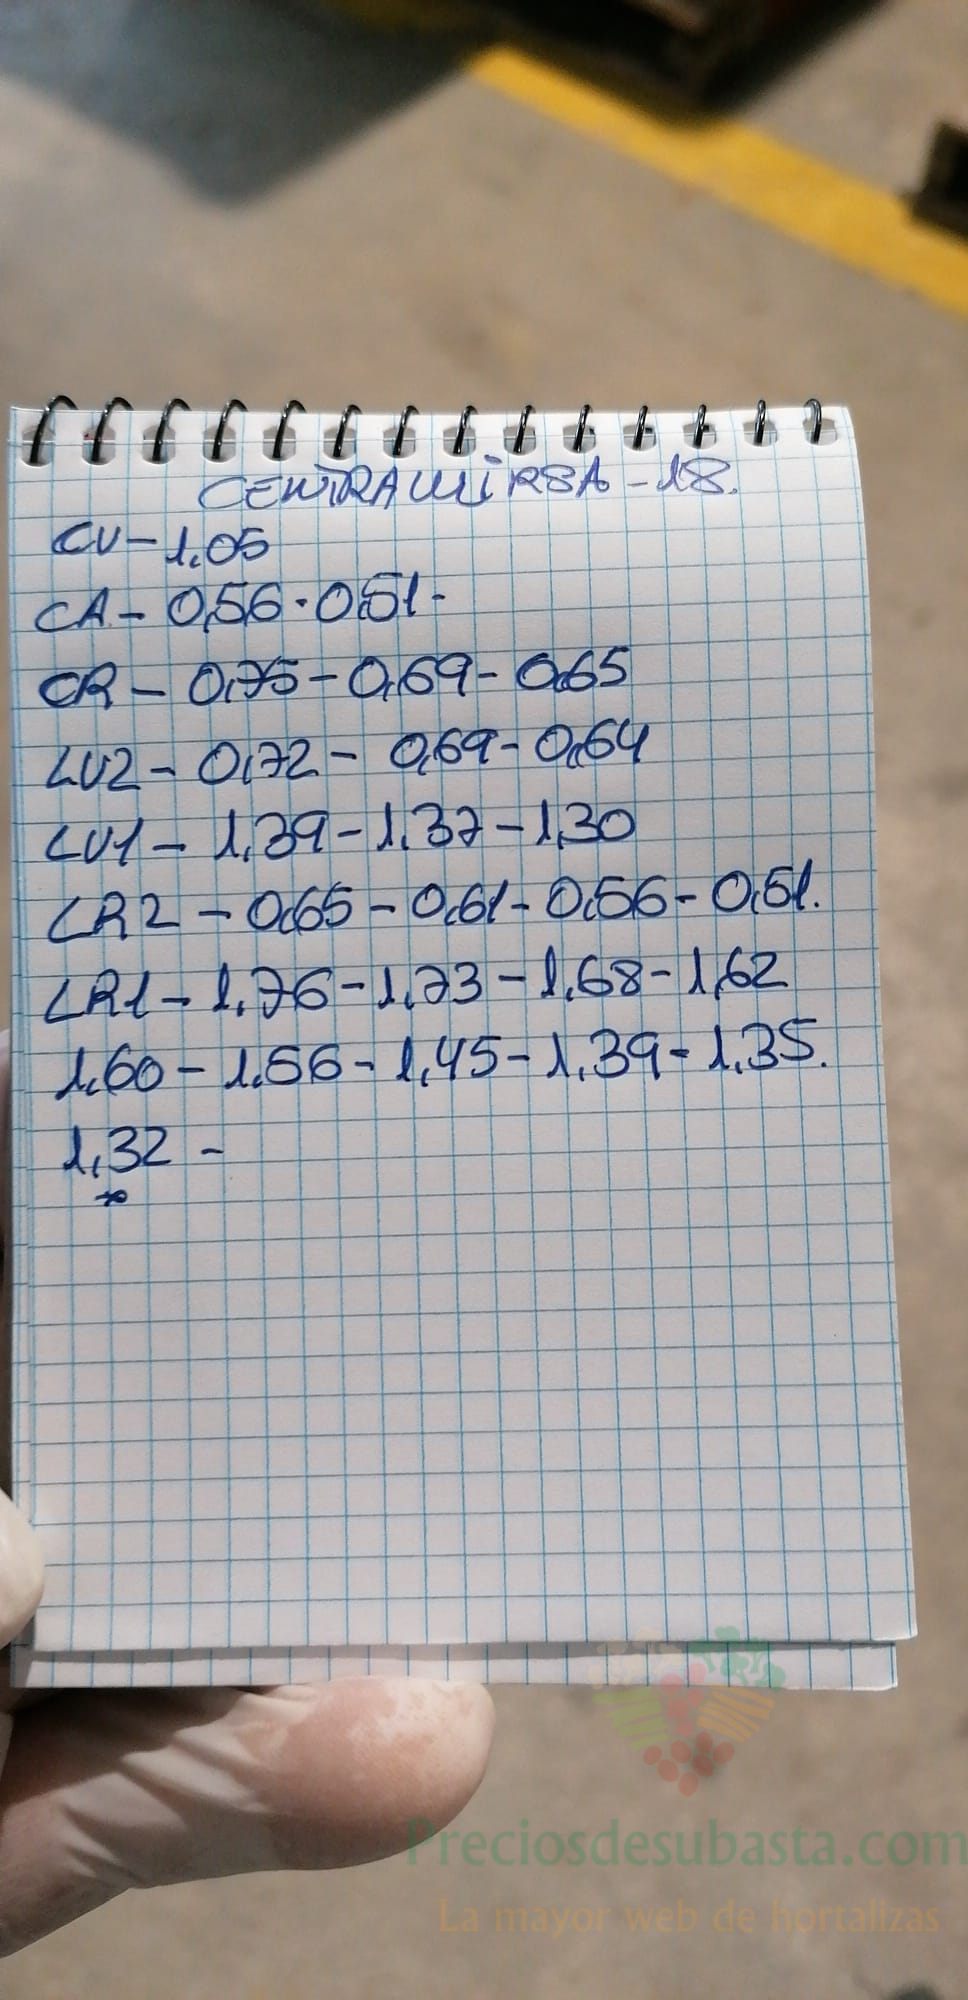 CENTRAMIRSA - 18.
CV - 1,05
CA - 0,56 - 0,51 -
CR - 0,75 - 0,69 - 0,65
LV2 - 0,72 - 0,69 - 0,64
LV1 - 1,39 - 1,37 - 1,30
LR2 - 0,65 - 0,61 - 0,56 - 0,51.
LR1 - 1,76 - 1,73 - 1,68 - 1,62
1,60 - 1,56 - 1,45 - 1,39 - 1,35.
1,32 -
Preciosdesubasta.com
La mayor web de hortalizas